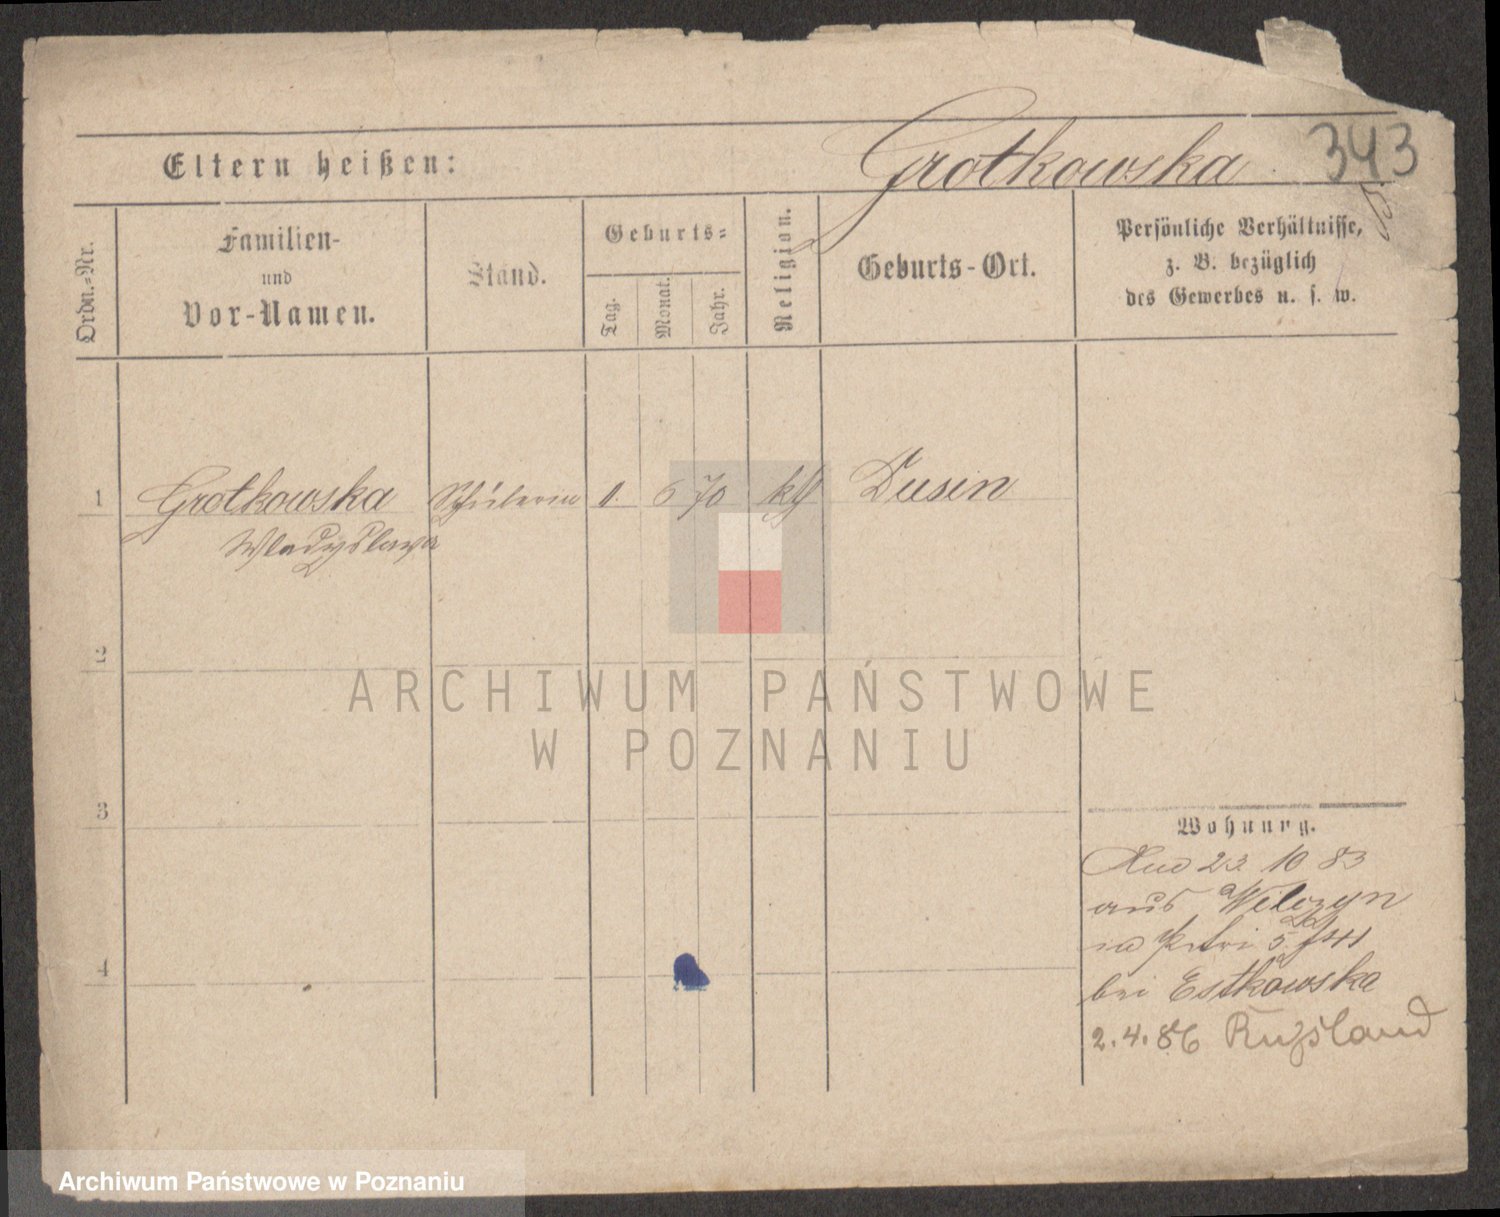 Grotkowska 343
Eltern heißen:
Ordn.-Nr.
Familien-
und
Vor-Namen.
Stand.
Geburts-
Tag.
Monat.
Jahr.
Religion.
Geburts-Ort.
Persönliche Verhältnisse,
z. B. bezüglich
des Gewerbes u. s. w.
1 Grotkowska Schülerin 1. 6 70 kth Dusin
Wladyslawa
2
3
4
Wohnung.
23 10 83
aus Wilczyn
in Petri 5
bei Estkowska
2.4.86 Rußland
ARCHIWUM PAŃSTWOWE
W POZNANIU
Archiwum Państwowe w Poznaniu